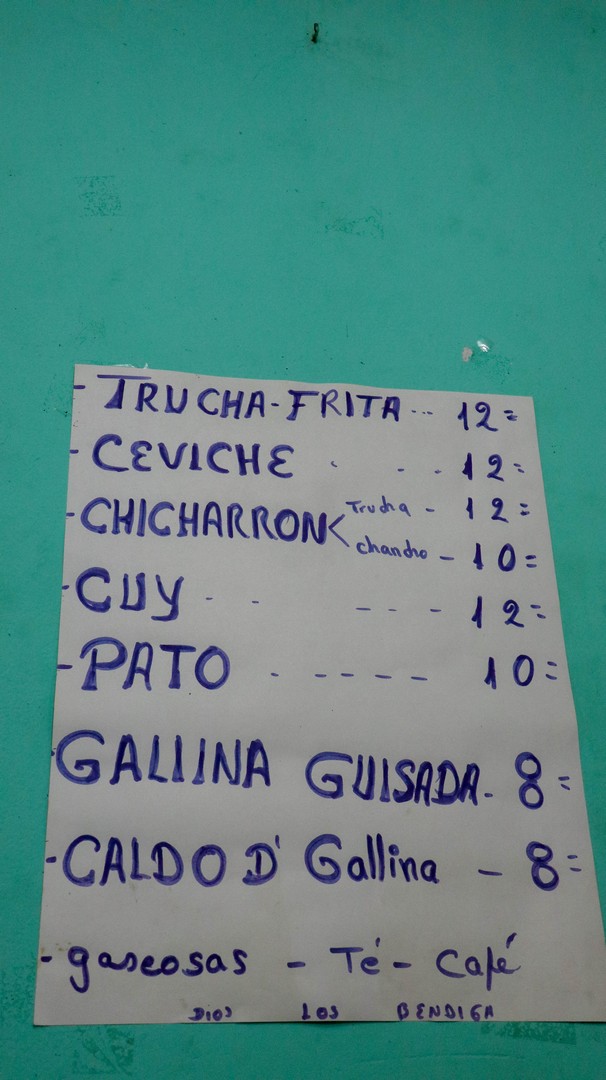 - TRUCHA-FRITA --- 12=
- CEVICHE - - - 12=
- CHICHARRON< Trucha - 12=
chancho - 10=
- CUY - - - - - 12=
- PATO - - - - - 10=
- GALLINA GUISADA - 8=
- CALDO D' Gallina - 8=
- gaseosas - Té - Café
DIOS LOS BENDIGA